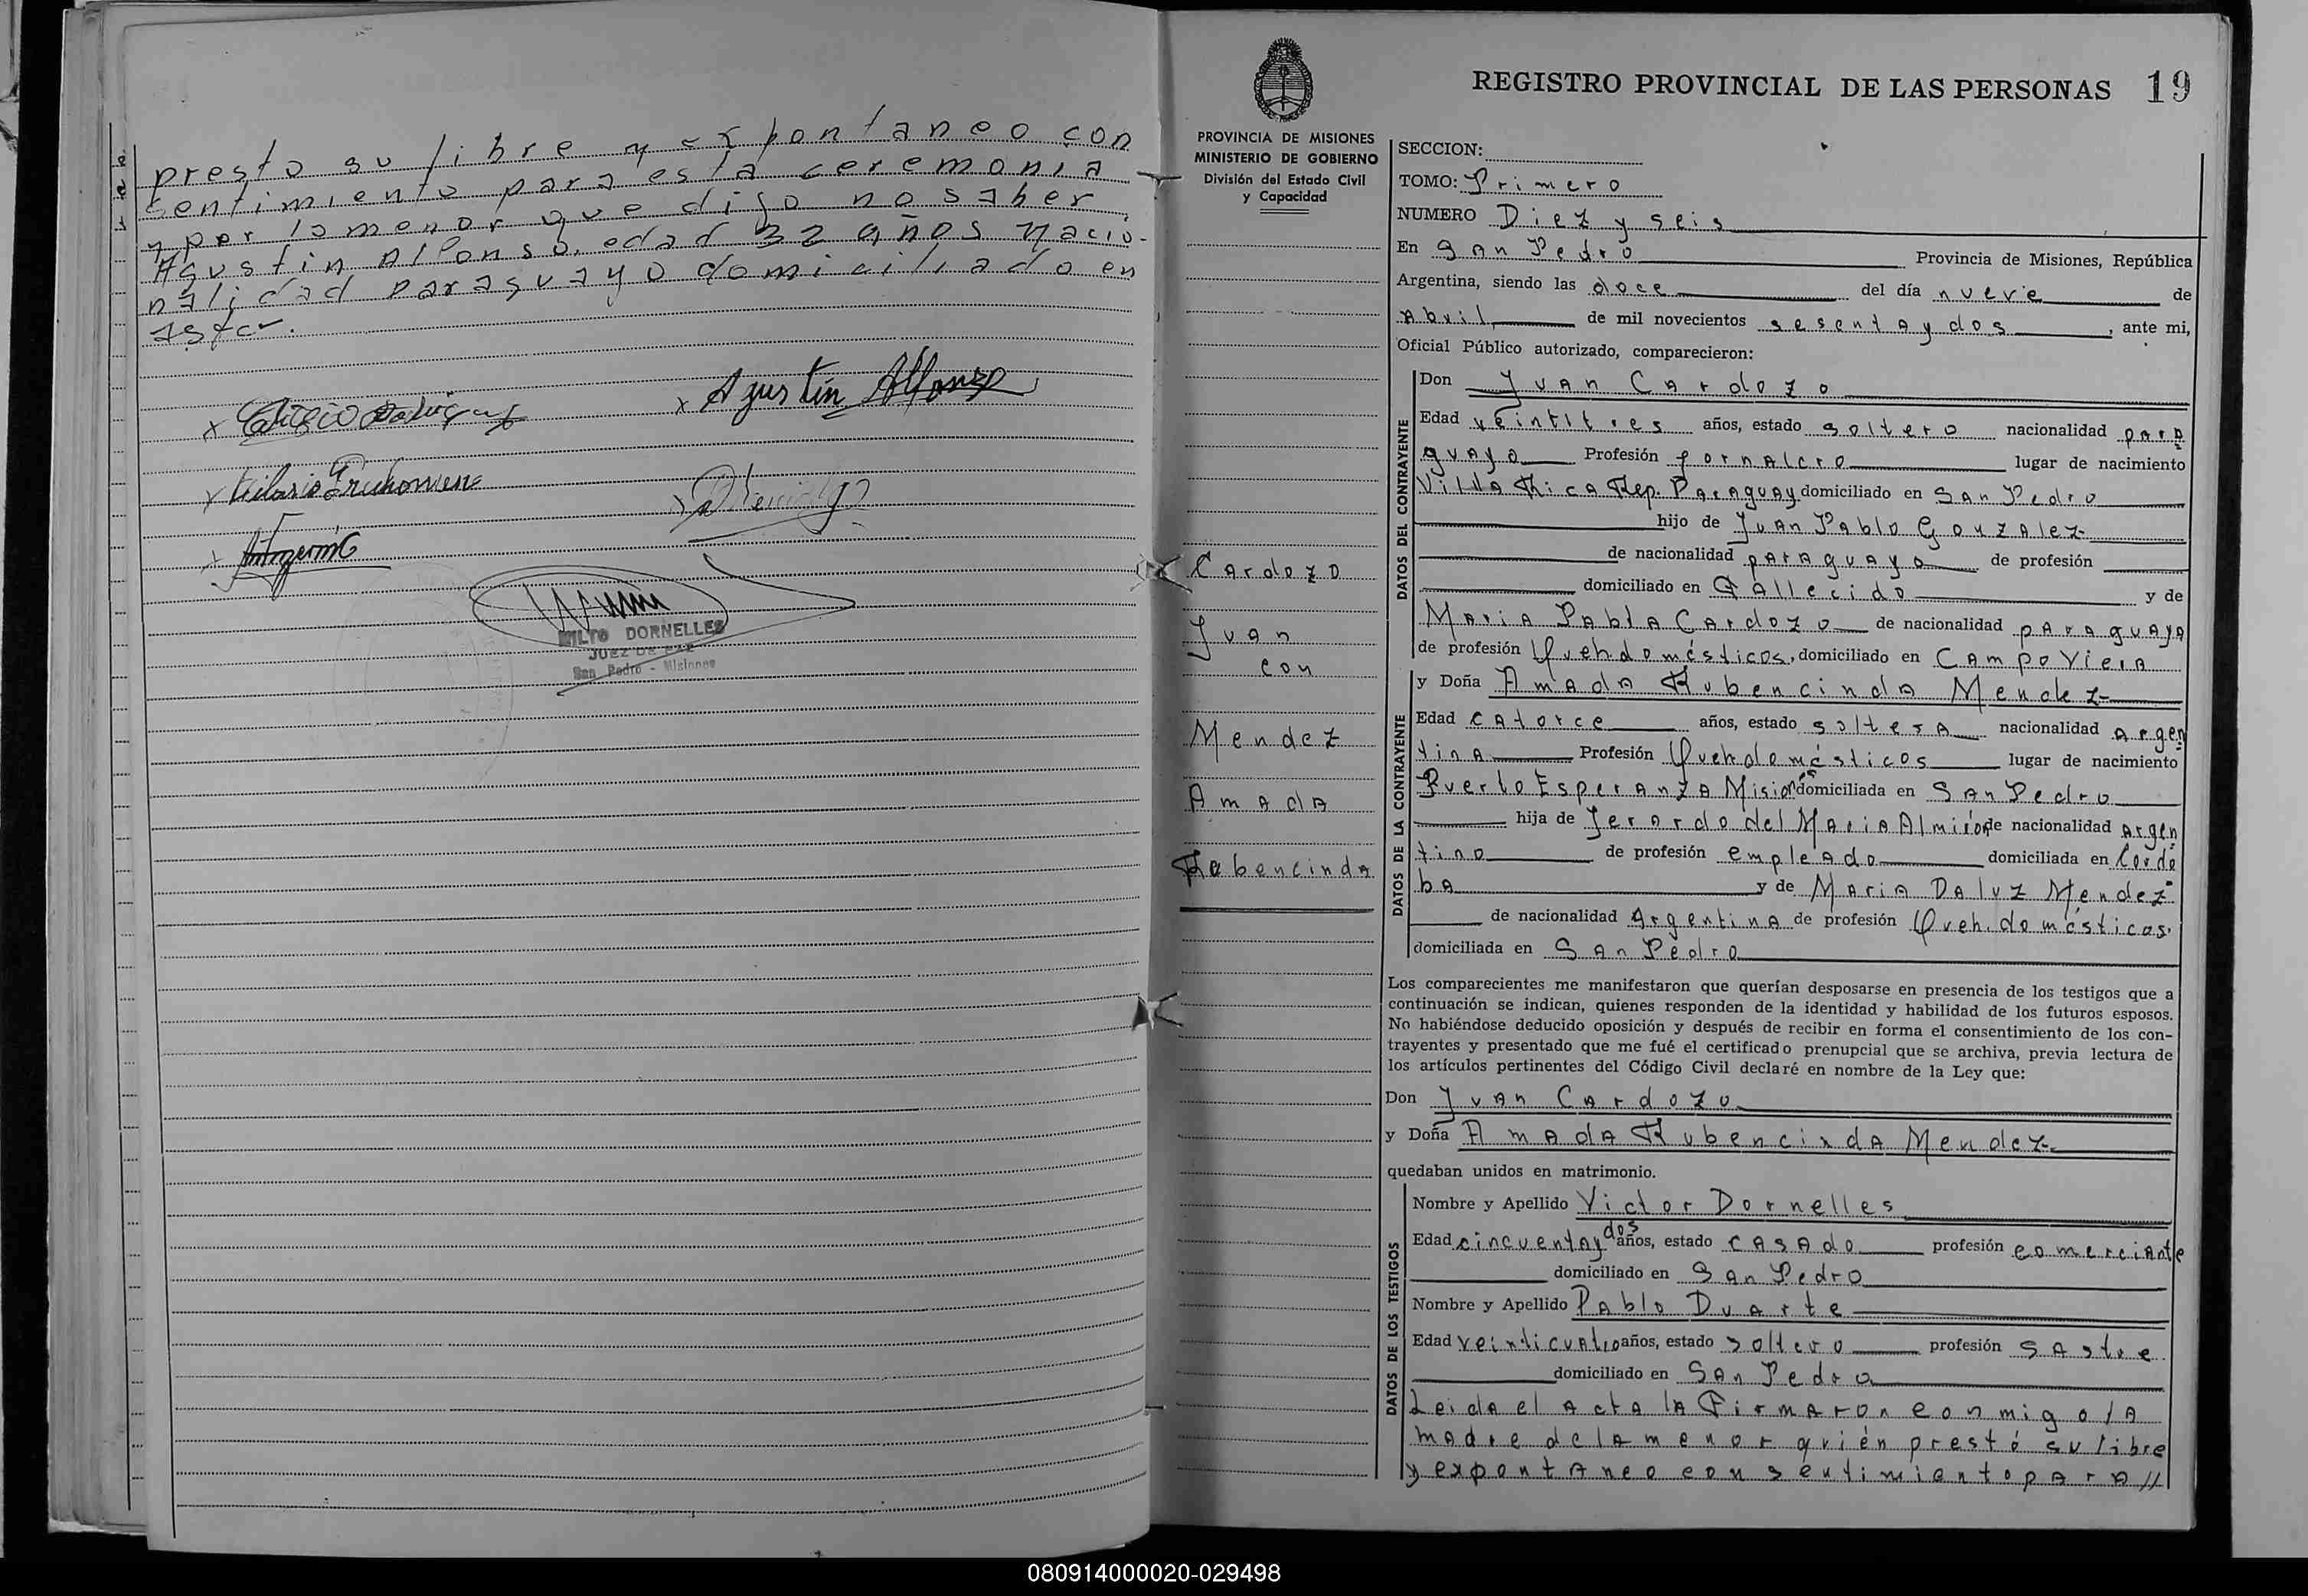 presto su libre y expontaneo con
sentimiento para esta ceremonia
y por la menor que dijo no saber,
Agustin Alfonso, edad 32 años nacio-
nalidad paraguayo domiciliado en
ésta.
x Agustín Alfonso
x
x Hilario
x
x
MILTO DORNELLES
JUEZ DE PAZ
San Pedro - Misiones
REGISTRO PROVINCIAL DE LAS PERSONAS 19
PROVINCIA DE MISIONES
MINISTERIO DE GOBIERNO
División del Estado Civil
y Capacidad
Cardozo
Juan
con
Mendez
Amada
Rubencinda
SECCION:
TOMO: Primero
NUMERO Diez y seis
En San Pedro Provincia de Misiones, República
Argentina, siendo las doce del día nueve de
Abril de mil novecientos sesenta y dos, ante mi,
Oficial Público autorizado, comparecieron:
DATOS DEL CONTRAYENTE
Don Juan Cardozo
Edad veintitres años, estado soltero nacionalidad para
guayo Profesión jornalero lugar de nacimiento
Villa Rica Rep. Paraguay domiciliado en San Pedro
hijo de Juan Pablo Gonzalez
de nacionalidad paraguayo de profesión
domiciliado en Fallecido y de
Maria Pabla Cardozo de nacionalidad paraguaya
de profesión Queh domésticos, domiciliado en Campo Viera
DATOS DE LA CONTRAYENTE
y Doña Amada Rubencinda Mendez
Edad catorce años, estado soltera nacionalidad Argen
tina Profesión Queh domésticos lugar de nacimiento
Puerto Esperanza Misiones domiciliada en San Pedro
hija de Jerardo del Maria Almirón de nacionalidad Argen
tino de profesión empleado domiciliada en Cordo
ba y de Maria Daluz Mendez
de nacionalidad Argentina de profesión Queh. domésticos.
domiciliada en San Pedro
Los comparecientes me manifestaron que querían desposarse en presencia de los testigos que a
continuación se indican, quienes responden de la identidad y habilidad de los futuros esposos.
No habiéndose deducido oposición y después de recibir en forma el consentimiento de los con-
trayentes y presentado que me fué el certificado prenupcial que se archiva, previa lectura de
los artículos pertinentes del Código Civil declaré en nombre de la Ley que:
Don Juan Cardozo
y Doña Amada Rubencinda Mendez
quedaban unidos en matrimonio.
DATOS DE LOS TESTIGOS
Nombre y Apellido Victor Dornelles
Edad cincuenta y dos años, estado casado profesión comerciante
domiciliado en San Pedro
Nombre y Apellido Pablo Duarte
Edad veinticuatro años, estado soltero profesión sastre
domiciliado en San Pedro
Leida el acta la firmaron conmigo la
madre de la menor quién prestó su libre
y expontaneo consentimiento para //
080914000020-029498